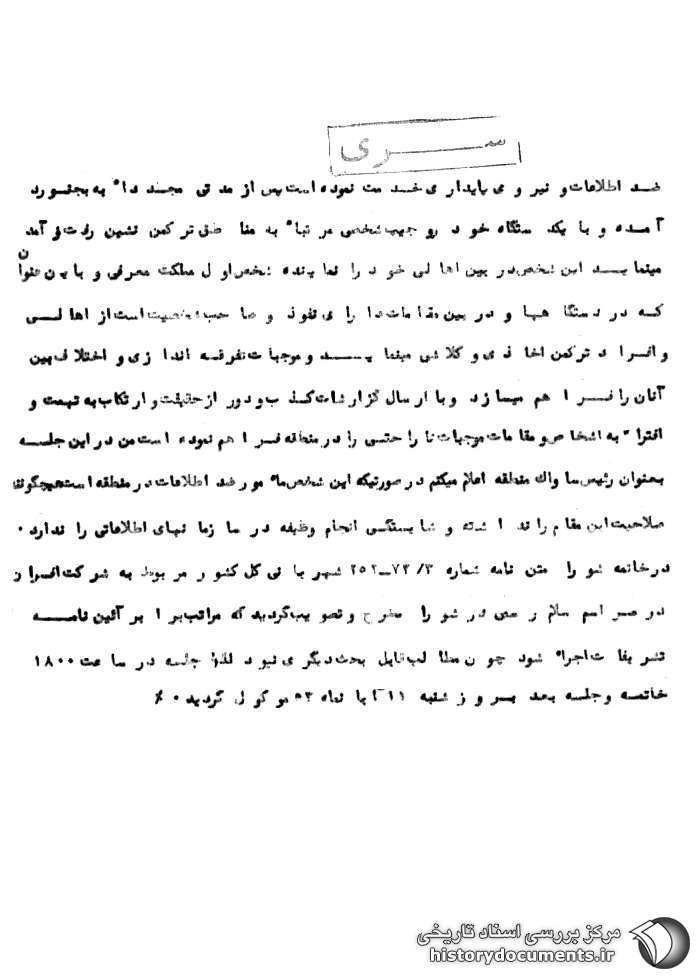 ســـری
ضد اطلاعات و نیروی پایداری خدمت نموده است پس از مدتی مجدداً به بجنورد
آمده و با یکدستگاه خودرو جیب شخصی مرتباً به مناطق ترکمن نشین رفت و آمد
مینماید این شخص در بین اهالی خود را نماینده شخص اول مملکت معرفی و باین عنوان
که در دستگاهها و در بین مقامات دارای نفوذ و صاحب شخصیت است از اهالی
و افراد ترکمن اخاذی و کلاشی مینماید و موجبات تفرقه اندازی و اختلاف بین
آنان را فراهم میسازد و با ارسال گزارشات کذب و دور از حقیقت و ارتکاب به تهمت و
افترا به اشخاص و مقامات موجبات ناراحتی را در منطقه فراهم نموده است من در این جلسه
بعنوان رئیس ساواک منطقه اعلام میکنم در صورتیکه این شخص مامور ضد اطلاعات در منطقه است هیچگونه
صلاحیت این مقام را نداشته و شایستگی انجام وظیفه در سازمانهای اطلاعاتی را ندارد ۰
در خاتمه شورا متن نامه شماره ۲۵۲-۷۲/۳ شهربانی کل کشور مربوط به شرکت افسران
در مراسم سلام رسمی در شورا مطرح و تصویب گردید که مراتب برابر آئین نامه
تشریفات اجرا شود چون مطالب قابل بحث دیگری نبود لذا جلسه در ساعت ۱۸۰۰
خاتمه و جلسه بعد بروز شنبه ۱۱ آبانماه ۵۳ موکول گردید ۰ ٪
مرکز بررسی اسناد تاریخی
historydocuments.ir